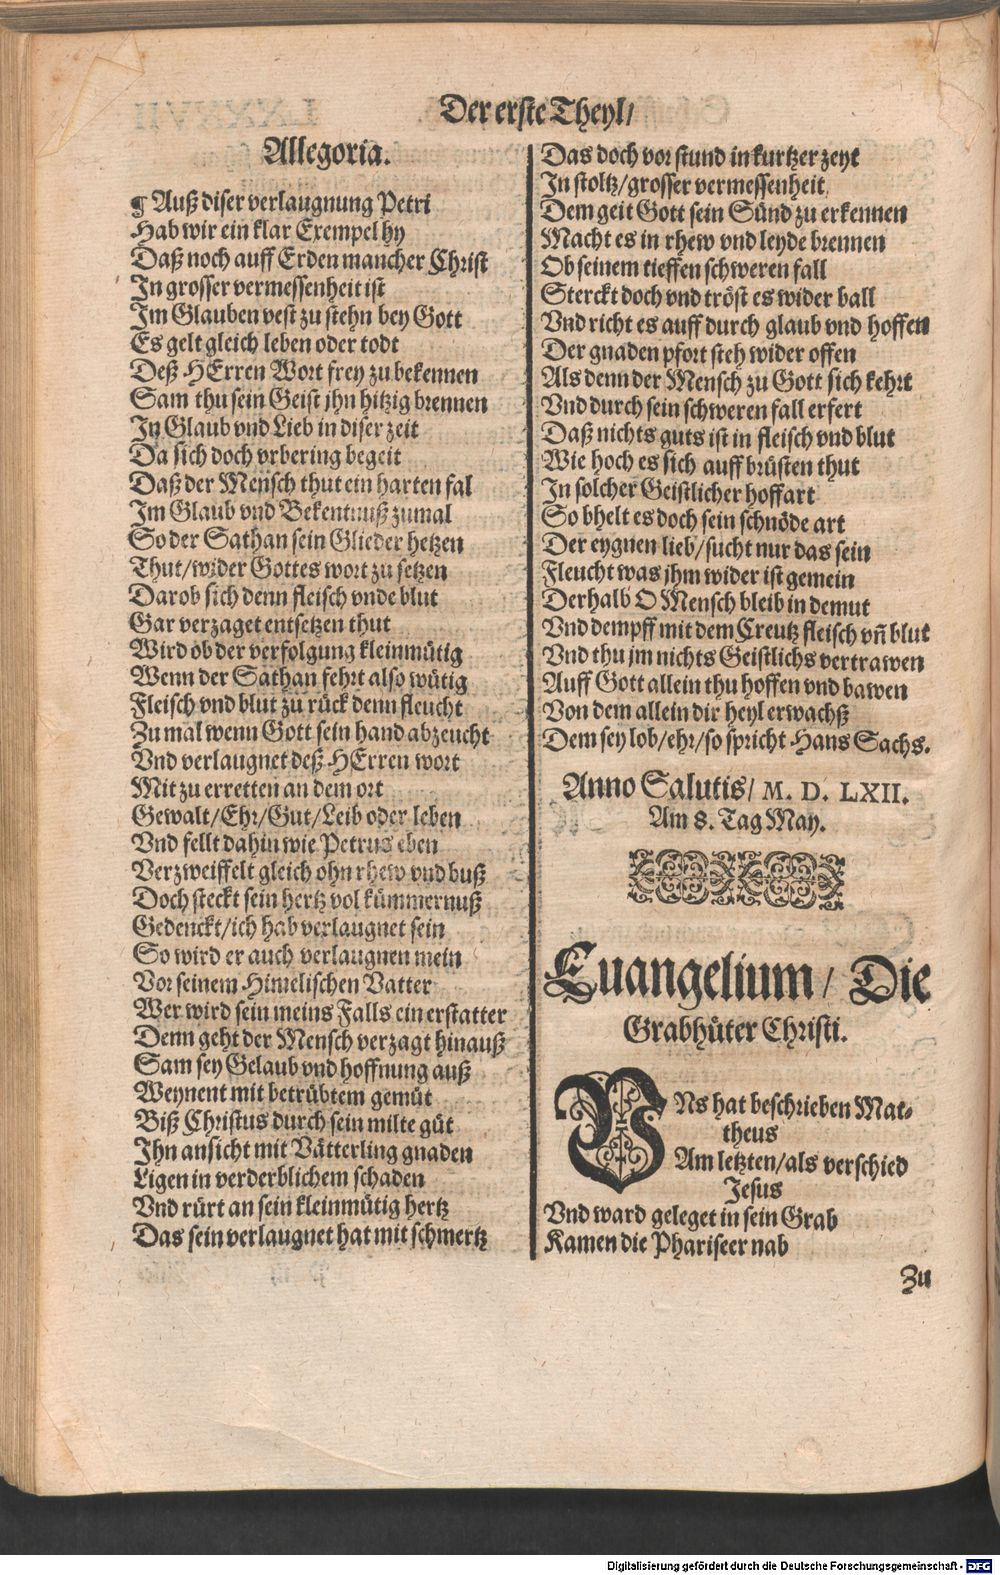 Der erste Theyl/
Allegoria.
¶ Auß diser verlaugnung Petri
Hab wir ein klar Exempel hy
Daß noch auff Erden mancher Christ
In grosser vermessenheit ist
Im Glauben vest zu stehn bey Gott
Es gelt gleich leben oder todt
Deß HErren Wort frey zu bekennen
Sam thu sein Geist jhn hitzig brennen
In Glaub vnd Lieb in diser zeit
Da sich doch vrbering begeit
Daß der Mensch thut ein harten fal
Im Glaub vnd Bekentnuß zumal
So der Sathan sein Glieder hetzen
Thut/wider Gottes wort zu setzen
Darob sich denn fleisch vnde blut
Gar verzaget entsetzen thut
Wird ob der verfolgung kleinmütig
Wenn der Sathan fehrt also wütig
Fleisch vnd blut zu rück denn fleucht
Zu mal wenn Gott sein hand abzeucht
Vnd verlaugnet deß HErren wort
Mit zu erretten an dem ort
Gewalt/Ehr/Gut/Leib oder leben
Vnd fellt dahin wie Petrus eben
Verzweiffelt gleich ohn rhew vnd buß
Doch steckt sein hertz vol kümmernuß
Gedenckt/ich hab verlaugnet sein
So wird er auch verlaugnen mein
Vor seinem Himelischen Vatter
Wer wird sein meins Falls ein erstatter
Denn geht der Mensch verzagt hinauß
Sam sey Gelaub vnd hoffnung auß
Weynent mit betrübtem gemüt
Biß Christus durch sein milte güt
Ihn ansicht mit Vätterling gnaden
Ligen in verderblichem schaden
Vnd rürt an sein kleinmütig hertz
Das sein verlaugnet hat mit schmertz
Das doch vor stund in kurtzer zeyt
In stoltz/grosser vermessenheit
Dem geit Gott sein Sünd zu erkennen
Macht es in rhew vnd leyde brennen
Ob seinem tieffen schweren fall
Sterckt doch vnd tröst es wider ball
Vnd richt es auff durch glaub vnd hoffen
Der gnaden pfort steh wider offen
Als denn der Mensch zu Gott sich kehrt
Vnd durch sein schweren fall erfert
Daß nichts guts ist in fleisch vnd blut
Wie hoch es sich auff brüsten thut
In solcher Geistlicher hoffart
So bhelt es doch sein schnöde art
Der eygnen lieb/sucht nur das sein
Fleucht was jhm wider ist gemein
Derhalb O Mensch bleib in demut
Vnd dempff mit dem Creutz fleisch vñ blut
Vnd thu jm nichts Geistlichs vertrawen
Auff Gott allein thu hoffen vnd bawen
Von dem allein dir heyl erwachß
Dem sey lob/ehr/so spricht Hans Sachs.
Anno Salutis/ M. D. LXII.
Am 8. Tag May.
Euangelium/ Die
Grabhüter Christi.
VNs hat beschrieben Mat-
theus
Am letzten/als verschied
Jesus
Vnd ward geleget in sein Grab
Kamen die Phariseer nab
Zu
Digitalisierung gefördert durch die Deutsche Forschungsgemeinschaft - DFG